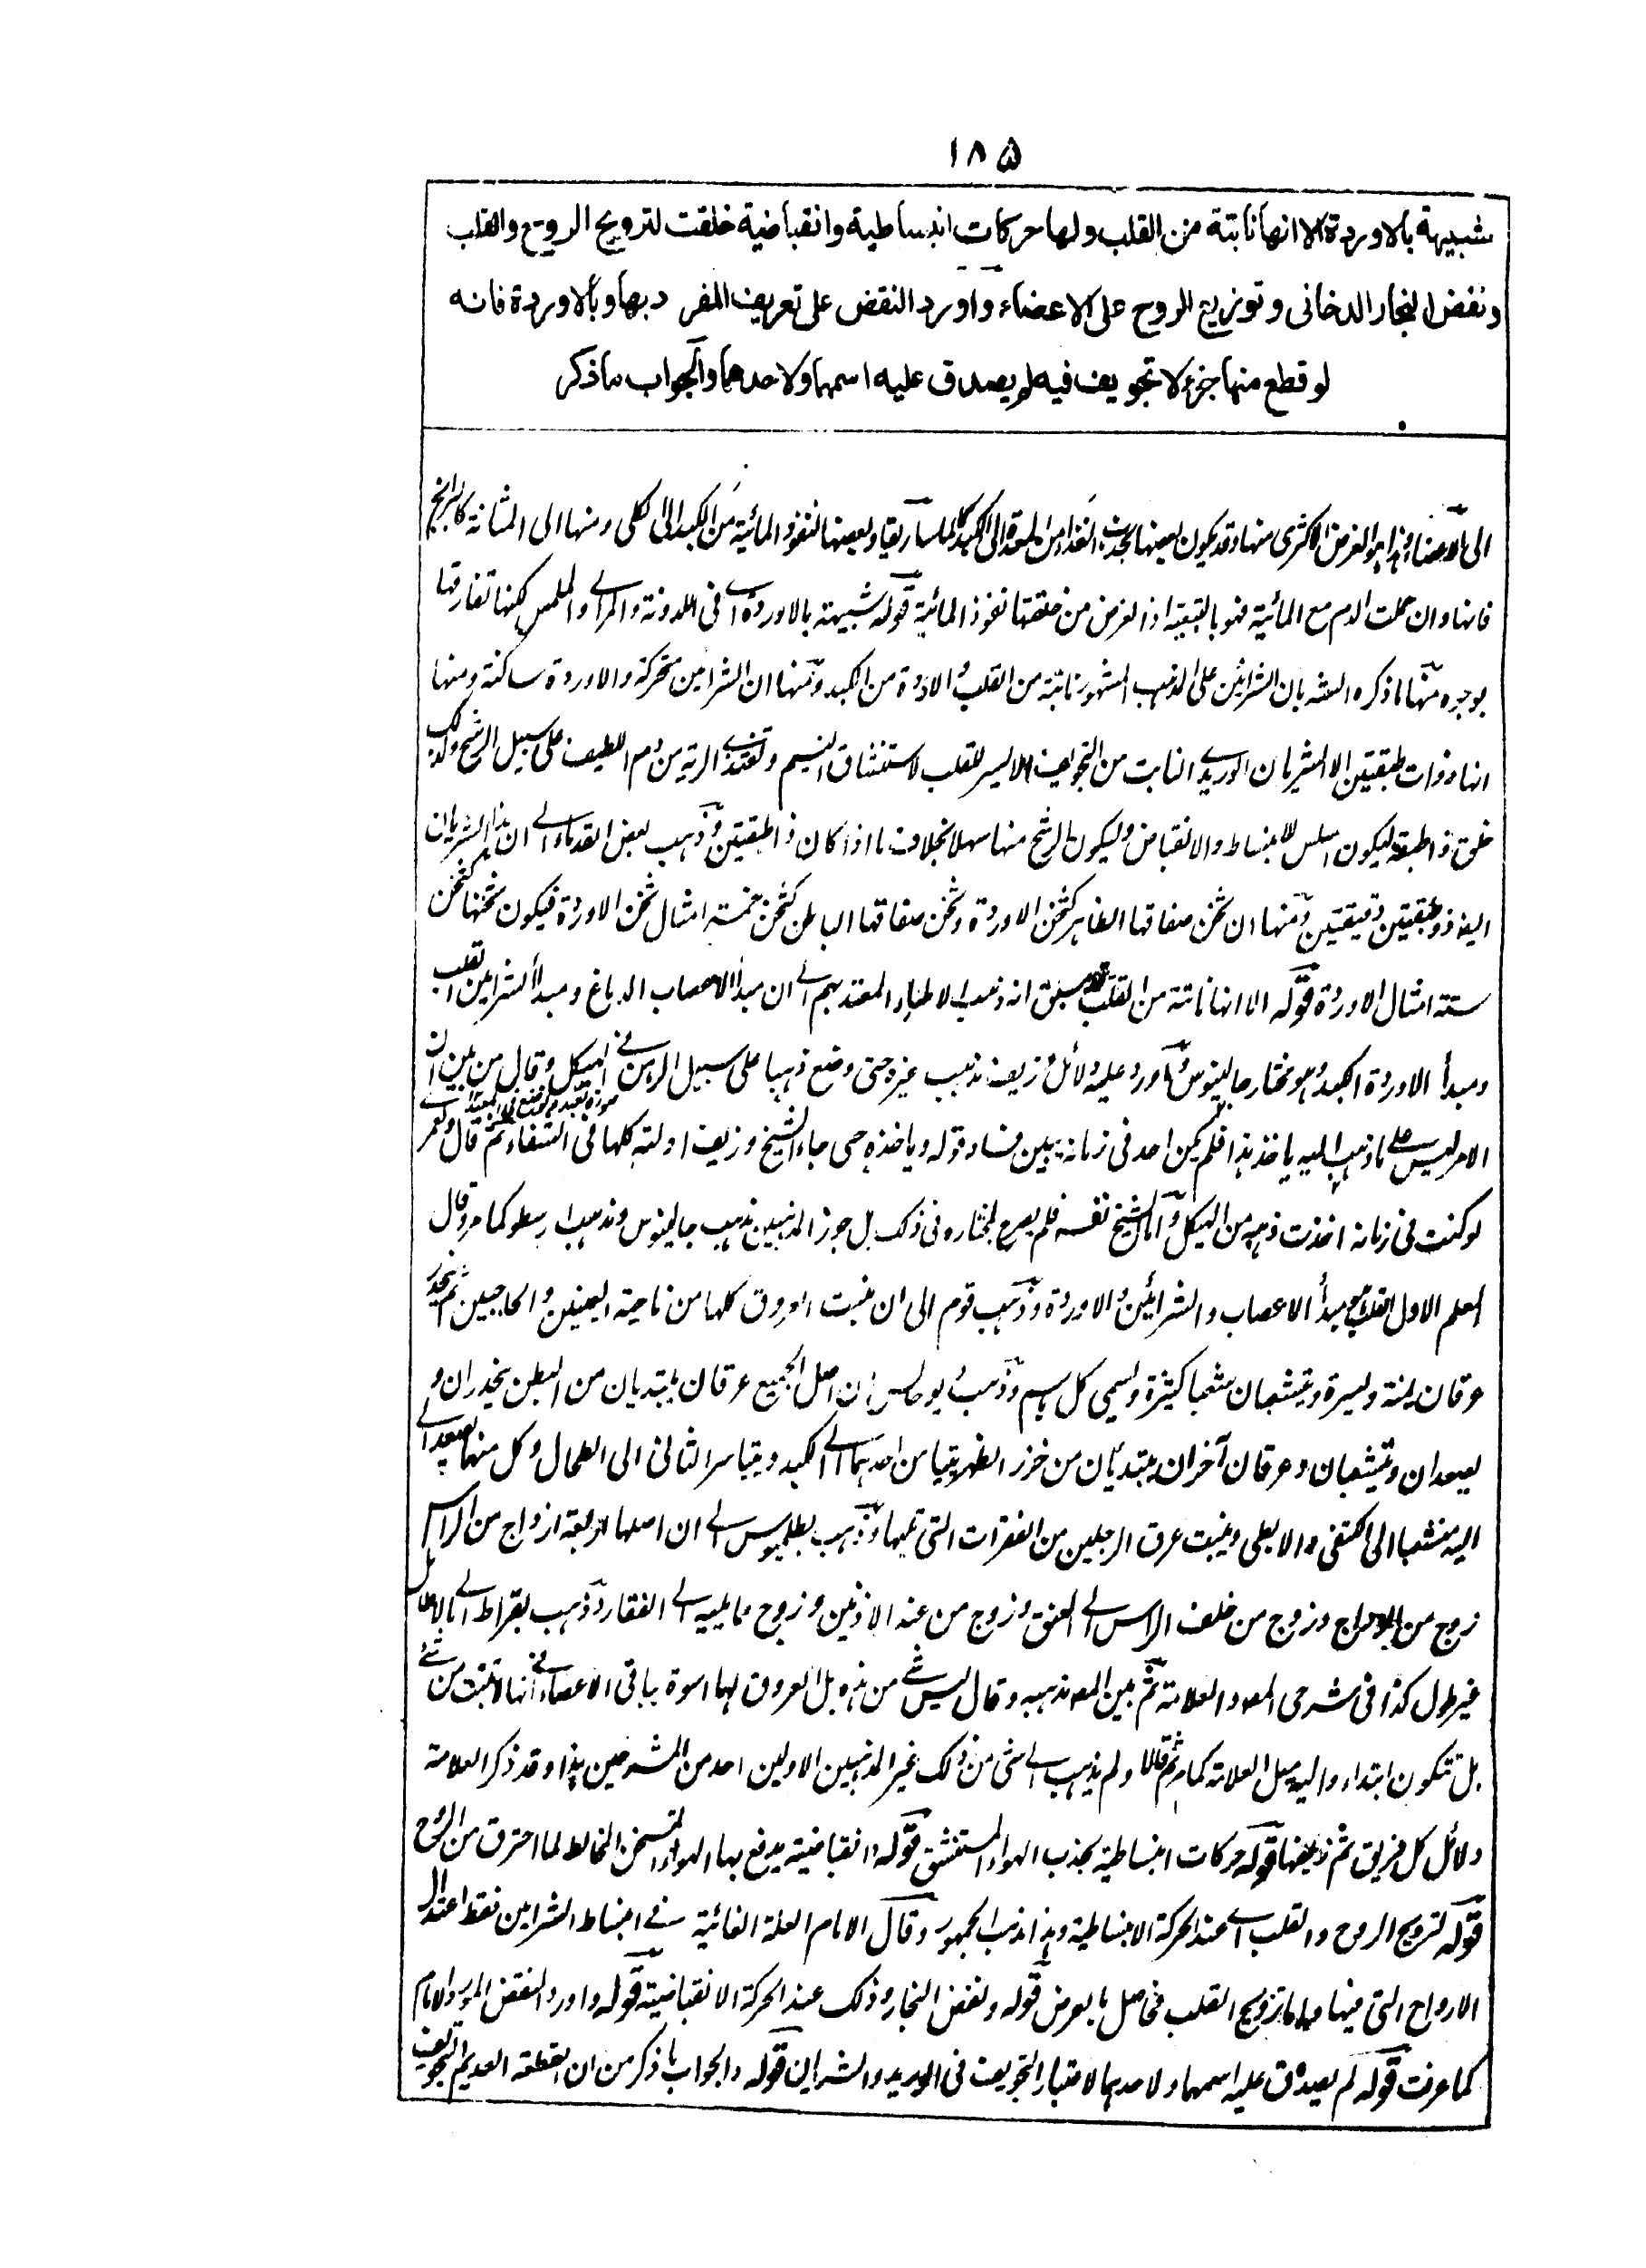 ١٨٥
شبيهة بالاوردة الا انها نابتة من القلب ولها حركات انبساطية وانقباضية خلقت لترويح الروح والقلب
ونفض البخار الدخانى وتوزيع الروح على الاعضاء واورد النقض على تعريف المفرد بها وبالاوردة فانه
لو قطع منها جزء لا تجويف فيه لم يصدق عليه اسمها ولا حدهما والجواب ماذكر
الى الاعضاء وهذا هو الغرض الاكثرى منها وقد يكون بعضها لجذب الغذاء من المعدة الى الكبد كالماساريقا وبعضها لنفوذ المائية من الكبد الى الكلى ومنها الى المثانة كالبرابخ
فانها وان حملت الدم مع المائية فهو بالتبعية اذ الغرض من خلقتها نفوذ المائية قوله شبيهة بالاوردة اے فى اللدونة والمراے والملمس لكنها تفارقها
بوجوه منها ما ذكره المشر بان الشرائين على المذهب المشهور نابتة من القلب والاوردة من الكبد ومنها ان الشرايين متحركة والاوردة ساكنة ومنها
انها ذوات طبقتين الا الشريان الوريدے النابت من التجويف الايسر للقلب لاستنشاق النسيم وتغذے الرية من دم اللطيف على سبيل الرشح ولذلك
خلق ذا طبقة ليكون اسلس للانبساط والانقباض وليكون الرشح منها سهلا بخلاف ما اذا كان ذا طبقتين وذهب بعض القدماء الے ان هذا الشريان
ايضا ذو طبقتين رقيقتين ومنها ان ثخن صفاقها الظاهر كثخن الاوردة وثخن صفاقها الباطن كثخن خمسة امثال ثخن الاوردة فيكون ثخنها كثخن
ستة امثال الاوردة قوله الا انها نابتة من القلب قد سبق انه ذهب الاطباء المعتد بهم الے ان مبدأ الاعصاب الدماغ ومبدأ الشرايين القلب
ومبدأ الاوردة الكبد وهو مختار جالينوس واورد عليه دلائل وزيف مذهب غيره حتى وضع ذهبا على سبيل الرهن فے الهيكل وقال من بين ان
الامر ليس على ما ذهب اليه ياخذ هذا فلم يكن احد فى زمانه يبين فساد قوله وياخذه حتى جاء الشيخ وزيف ادلته كلها فى الشفاء ثم قال ولعمرے
لو كنت فى زمانه اخذت ذهبه من الهيكل واما الشيخ نفسه فلم يصرح بمختاره فى ذلك بل جوز المذهبين مذهب جالينوس ومذهب ارسطو كما مر وقال
المعلم الاول القلب هو مبدأ الاعصاب والشرائين والاوردة وذهب قوم الى ان منبت العروق كلها من ناحية العينين والحاجبين ثم ينحدر
عرقان يمنة ويسرة ويتشعبان شعبا كثيرة ويسمى كل باسم وذهب بولس ان اصل الجميع عرقان يبتديان من البطن ينحدران و
يصعدان ويتشعبان وعرقان آخران يبتديان من خرز الظهر يتيامن احدهما الے الكبد ويتياسر الثانى الى الطحال وكل منها يصعد الے
اليه منشعبا الى الكتفى والابطى وينبت عرق الرجلين من الفقرات التى تليها وذهب بطليموس الے ان اصلها اربعة ازواج من الراس
زوج من وزوج من خلف الراس الے العنق وزوج من عند الاذنين وزوج مما يليه الے الفقار وذهب بقراط الے
غير طول كذا فى شرحى العلامة ثم بين المص مذهبه وقال ليس شے من هذه بل العروق لها اسوة بباقى الاعضاء فے انها لا تنبت من شے
بل تتكون ابتداء واليه ميل العلامة كما مر ثم قالا ولم يذهب الے شئ من ذلك غير المذهبين الاولين احد من المشرحين هذا وقد ذكر العلامة
دلائل كل فريق ثم زيفها قوله حركات انبساطية بجذب الهواء المستنشق قوله وانقباضية يدفع بها الهواء المتسخن المخالط لما احترق من الروح
قوله لترويح الروح والقلب اے عند الحركة الانبساطية وهذا مذهب الجمهور وقال الامام العلة الغائية فے انبساط الشرايين فقط اعتدال
الارواح التى فيها واما ترويح القلب فحاصل بالعرض قوله ونفض البخار وذلك عند الحركة الانقباضية قوله واورد النقض المورد الامام
كما عرفت قوله لم يصدق عليه اسمها ولا حدهما لاعتبار التجويف فى الوريد والشرايين قوله والجواب ما ذكر من ان القطعة العديم التجويف